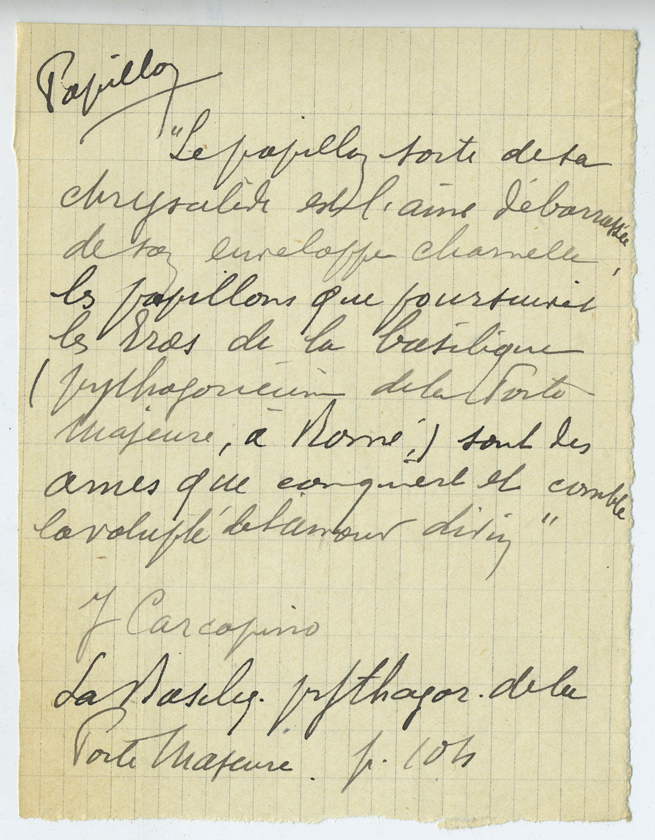 Papillon
"Le papillon sorte de sa
chrysalide est l'âme débarrassée
de son enveloppe charnelle,
les papillons que poursuivent
les Eros de la basilique
(pythagoricienne de la Porte
Majeure, à Rome,) sont des
âmes que conquiert et comble
la volupté de l'amour divin"
J Carcopino
La Basiliq. pythagor. de la
Porte Majeure. p.